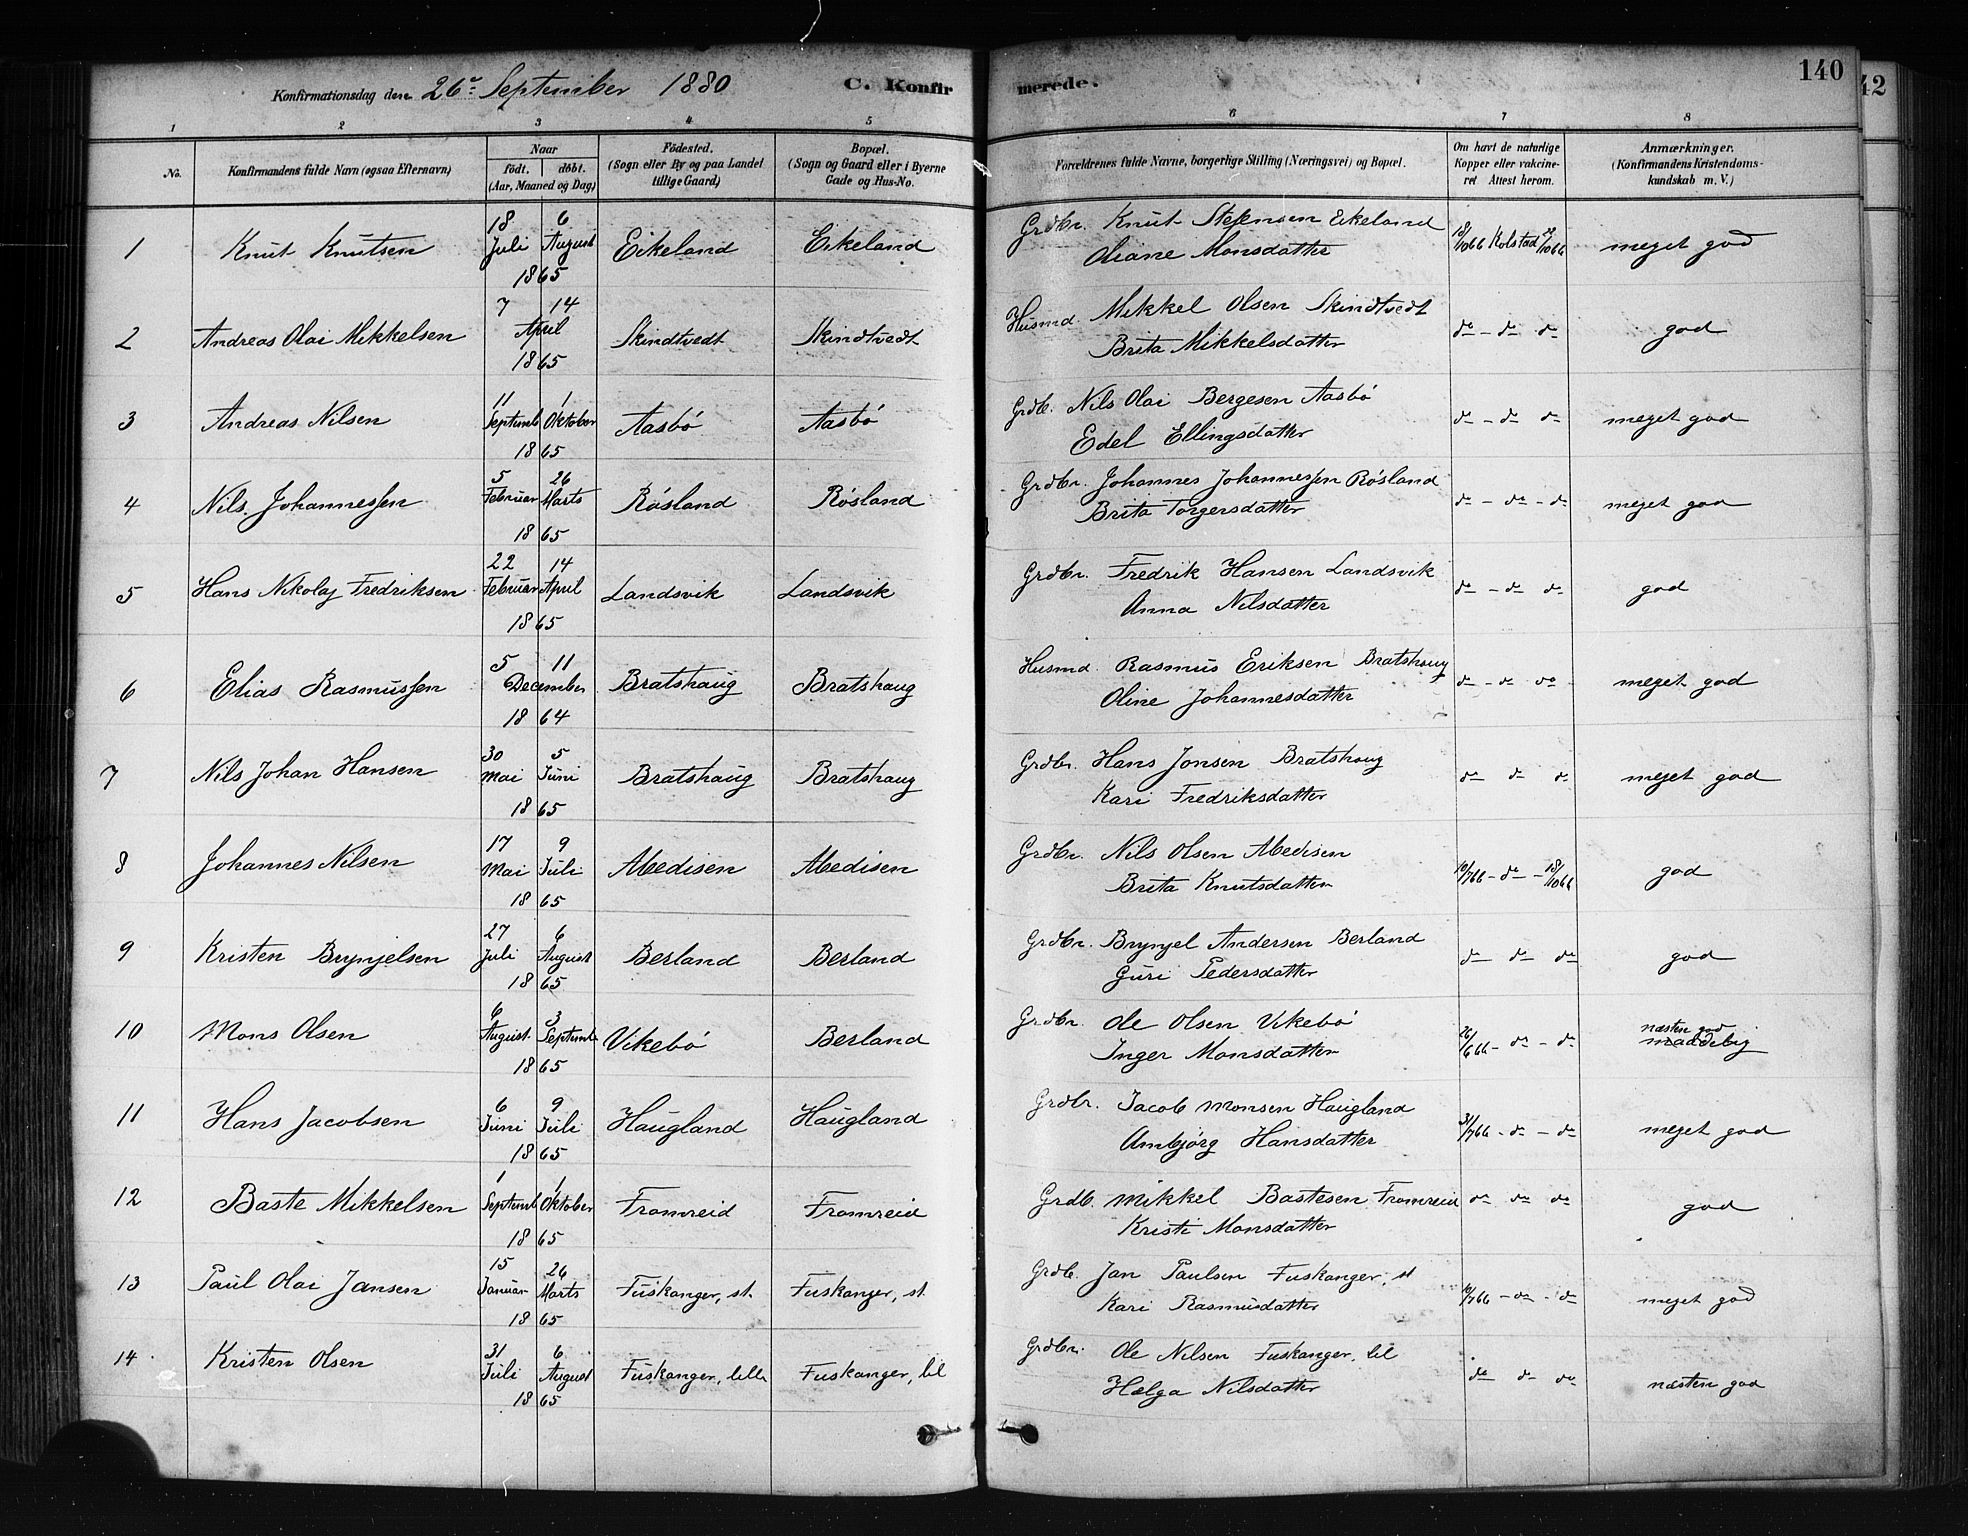 Konfirmationsdag den 26de September 1880 C. Konfirmerede. 140
42
1 2 3 4 5 6 7 8
No. Konfirmandens fulde Navn (ogsaa Efternavn) Naar født. døbt. (Aar, Maaned og Dag) Fødested. (Sogn eller By og paa Landet tillige Gaard) Bopæl. (Sogn og Gaard eller i Byerne Gade og Hus-No. Forældrenes fulde Navne, borgerlige Stilling (Næringsvei) og Bopæl. Om havt de naturlige Kopper eller vakcineret Attest herom. Anmærkninger. (Konfirmandens Kristendomskundskab m. V.)
1 Knut Knutsen 18 Juli 6 August 1865 Eikeland Eikeland Grdbr. Knut Stefensen Eikeland
Oliane Monsdatter 18/1066 Kolstad 29/1066 meget god
2 Andreas Olai Mikkelsen 7 14 April 1865 Skindtvedt Skindtvedt Husmd. Mikkel Olsen Skindtvedt
Brita Mikkelsdatter do - do do god
3 Andreas Nilsen 11 Septemb 1 Oktober 1865 Aasbö Aasbö Grdb. Nils Olai Bergesen Aasbö
Edel Ellingsdatter do - do do meget god
4 Nils Johannessen 5 Februar 26 Marts 1865 Røsland Røsland Grdbr. Johannes Johannessen Røsland
Brita Torgersdatter do - do - do meget god
5 Hans Nikolaj Fredriksen 22 Februar 14 April 1865 Landsvik Landsvik Grdbr. Fredrik Hansen Landsvik
Anna Nilsdatter do - do do god
6 Elias Rasmussen 5 11 December 1864 Bratshaug Bratshaug Husmd. Rasmus Eriksen Bratshaug
Oline Johannesdatter do - do do meget god
7 Nils Johan Hansen 30 Mai 5 Juni 1865 Bratshaug Bratshaug Grdbr. Hans Jonsen Bratshaug
Kari Fredriksdatter do do do meget god
8 Johannes Nilsen 17 Mai 9 Juli 1865 Abedisen Abedisen Grdbr. Nils Olsen Abedisen
Brita Knutsdatter 10/766 - do - 18/1066 god
9 Kristen Brynjelsen 27 Juli 6 August 1865 Berland Berland Grdbr. Brynjel Andersen Berland
Guri Pedersdatter do do do god
10 Mons Olsen 6 August 3 Septemb 1865 Vikebö Berland Grdbr. Ole Olsen Vikebö
Inger Monsdatter 26/666 - do - do næsten god
11 Hans Jacobsen 6 Juni 9 Juli 1865 Haugland Haugland Grdbr. Jacob Monsen Haugland
Ambjørg Hansdatter 31/766 - do - do meget god
12 Baste Mikkelsen 1 Septemb 1 Oktober 1865 Fromreid Fromreid Grdb. Mikkel Bastesen Fromreid
Kristi Monsdatter do do do god
13 Paul Olai Jansen 15 Januar 26 Marts 1865 Fuskanger, st. Fuskanger, st Grdb. Jan Paulsen Fuskanger, st
Kari Rasmusdatter 10/766 - do - do meget god
14 Kristen Olsen 31 Juli 6 August 1865 Fuskanger, lille Fuskanger, lil Grdbr. Ole Nilsen Fuskanger, lil
Helga Nilsdatter do do do næsten god